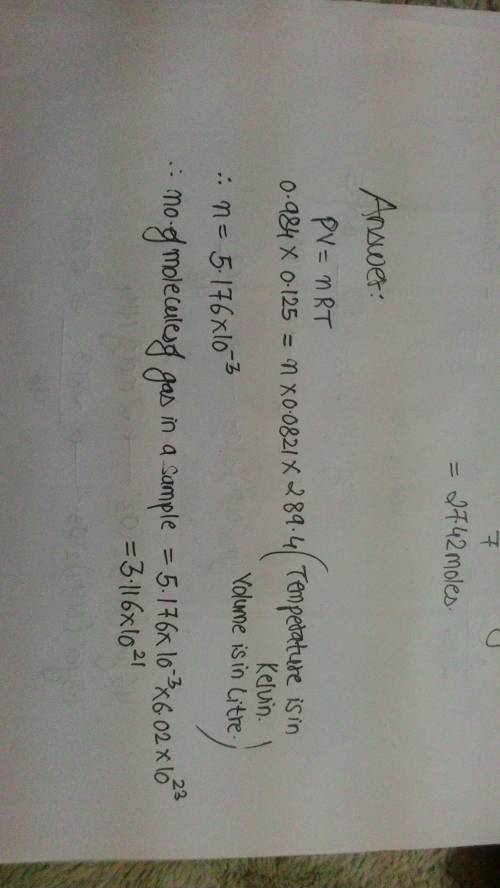 7
= 27.42 moles.
Answer:
PV = nRT
0.984 x 0.125 = n x 0.0821 x 289.4 (Temperature is in
Kelvin.
Volume is in Litre.)
∴ n = 5.176 x 10⁻³
∴ no. of molecules of gas in a sample = 5.176 x 10⁻³ x 6.02 x 10²³
= 3.116 x 10²¹